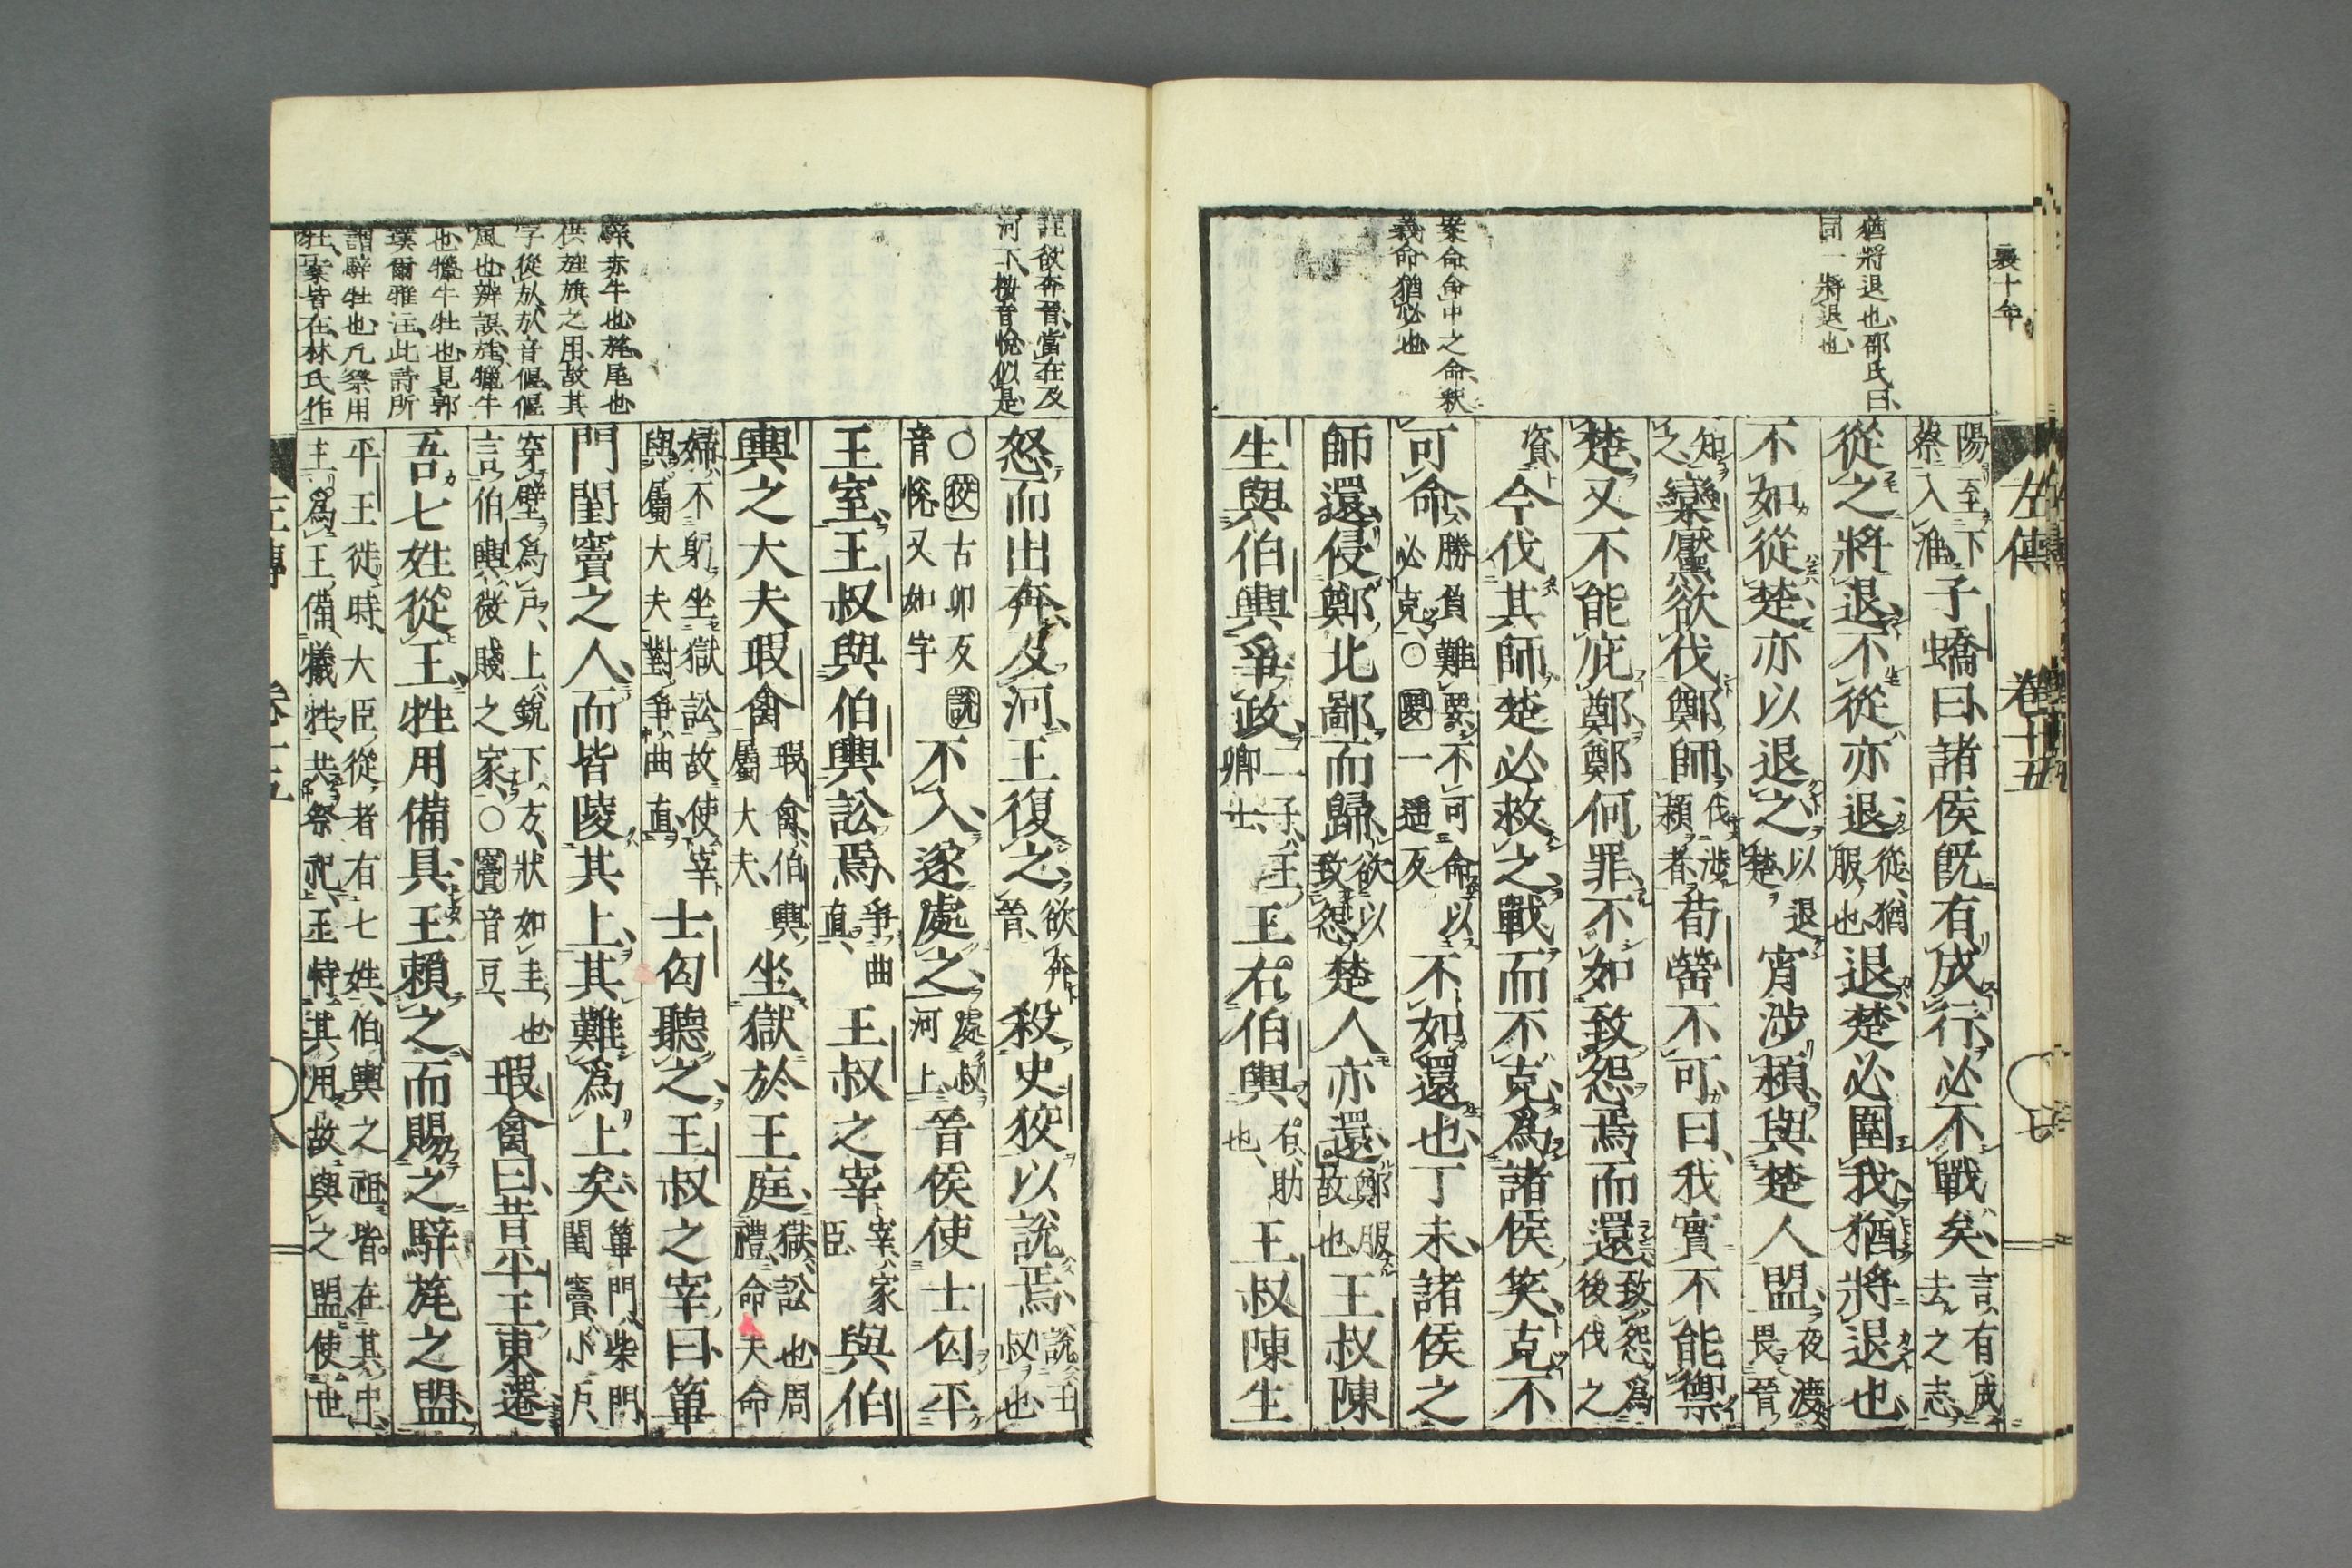 襄十年
猶將退也邵氏曰
同一將退也
案命命中之命釈
義命猶必也
左傳 卷十五 七
陽至下
蔡入淮
子蟜曰諸侯既有成行必不戰矣
言有成
去之志
從之將退不從亦退
從猶
服也
退楚必圍我猶將退也
不如從楚亦以退之
以退
楚
宵涉潁與楚人盟
夜渡
畏晉
知
之
欒黶欲伐鄭師
伐涉
潁者
荀罃不可曰我實不能禦
楚又不能庇鄭鄭何罪不如致怨焉而還
致怨爲
後伐之
資
今伐其師楚必救之戰而不克爲諸侯笑克不
可命
勝負難要不可命以
必克○要一遥反
不如還也丁未諸侯之
師還侵鄭北鄙而歸
欲以
致怨
楚人亦還
鄭服
故也
王叔陳
生與伯輿爭政
二子王
卿士
王右伯輿
右助
也
王叔陳生
註欲奔晉當在及
河下按音悅似是
騂赤牛也旄尾也
供旌旗之用故其
字從㫃㫃音偃偃
風也辨誤旄犛牛
也犧牛牡也見郭
璞爾雅注此詩所
謂騂牡也凡祭用
牡案皆在林氏作
怒而出奔及河王復之
欲奔
晉
殺史狡以說焉
說王
叔也
○狡古卯反說
音悅又如字
不入遂處之
處叔
河上
晉侯使士匄平
王室王叔與伯輿訟焉
爭曲
直
王叔之宰
宰家
臣
與伯
輿之大夫瑕禽
瑕禽伯輿
屬大夫
坐獄於王庭
獄訟也周
禮命夫命
婦不躬坐獄訟故使宰
與屬大夫對爭曲直
士匄聽之王叔之宰曰篳
門閨竇之人而皆陵其上其難爲上矣
篳門柴門
閨竇小戶
穿壁爲戶上銳下方狀如圭也
言伯輿微賤之家○竇音豆
瑕禽曰昔平王東遷
吾七姓從王牲用備具王賴之而賜之騂旄之盟
平王徙時大臣從者有七姓伯輿之祖皆在其中
主爲王備犧牲共祭祀王恃其用故與之盟使世
左傳 卷十五 八